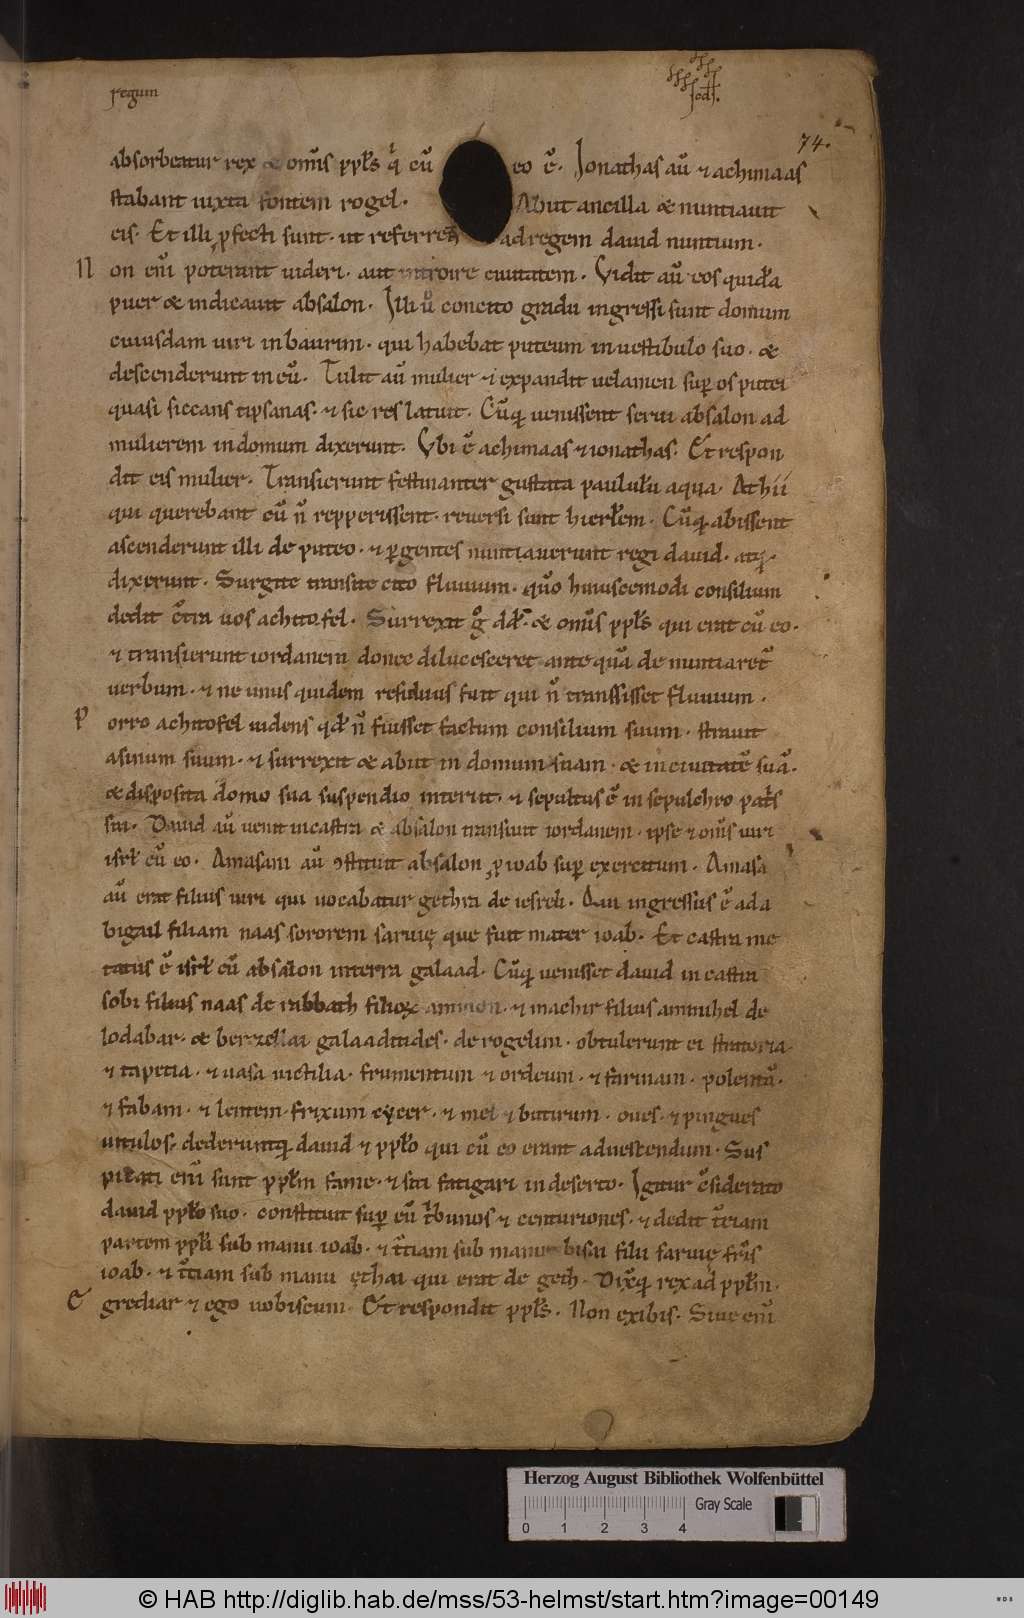 regum
74.
absorbeatur rex & om̄s ppl̄s q̇ cū eo ē. Jonathas aū ⁊ achimaas
stabant iuxta fontem rogel. Abiit ancilla & nuntiauit
eis. Et illi ꝓfecti sunt. ut referrent ad regem dauid nuntium.
N on eni᷑ poterant uideri. aut introire ciuitatem. Vidit aū eos quidā
puer & indicauit absalon. Illi u̇ concito gradu ingressi sunt domum
cuiusdam uiri in baurim. qui habebat puteum in uestibulo suo. &
descenderunt in eū. Tulit aū mulier ⁊ expandit uelamen sup̄ os putei
quasi siccans tipsanas. ⁊ sic res latuit. Cūq; uenissent serui absalon ad
mulierem in domum dixerunt. Vbi ē achimaas ⁊ ionathas. Et respon
dit eis mulier. Transierunt festinanter gustata paululū aqua. At hii
qui querebant cū n̄ repperissent. reuersi sunt hierl̄em. Cūq; abissent
ascenderunt illi de puteo. ⁊ ꝑgentes nuntiauerunt regi dauid. atq;
dixerunt. Surgite transite cito fluuium. qūo huiuscemodi consilium
dedit c̄tra uos achitofel. Surrexit gͦ dd̄. & om̄s ppl̄s qui erat cū eo.
⁊ transierunt iordanem donec dilucesceret ante quā de nuntiaret᷑
uerbum. ⁊ ne unus quidem residuus fuit qui n̄ transsisset fluuium.
P orro achitofel uidens qd̄ n̄ fuisset factum consilium suum. strauit
asinum suum. ⁊ surrexit & abiit in domum suam. & in ciuitatē suā.
& disposita domo sua suspendio interiit. ⁊ sepultus ē in sepulchro pat̄s
sui. Dauid aū uenit in castra & absalon transiuit iordanem. ipse ⁊ om̄s uiri
isrl̄ cū eo. Amasam aū ꝯstituit absalon ꝓ ioab sup̄ exercitum. Amasa
aū erat filius uiri qui uocabatur gethra de iesreli. Qui ingressus ē ad a
bigail filiam naas sororem saruię que fuit mater ioab. Et castra me
tatus ē isrl̄ cū absalon in terra galaad. Cūq; uenisset dauid in castra
sobi filius naas de rabbath filioꝝ ammon. ⁊ machir filius ammihel de
lodabar. & berzellai galaaditides. de rogelim. obtulerunt ei stratoria.
⁊ tapetia. ⁊ uasa uictilia. frumentum ⁊ ordeum. ⁊ farinam. polentā.
⁊ fabam. ⁊ lentem. frixum cycer. ⁊ mel ⁊ butirum. oues. ⁊ pingues
uitulos. dederuntq; dauid ⁊ ppl̄o qui cū eo erant ad uescendum. Sus
picati eni᷑ sunt ppl̄m fame. ⁊ siti fatigari in deserto. Igitur c̄siderato
dauid ppl̄o suo. constituit sup̄ eū tͥbunos ⁊ centuriones. ⁊ dedit t̄ciam
partem ppl̄i sub manu ioab. ⁊ t̄ciam sub manu bisai filii saruię fr̄is
ioab. ⁊ t̄ciam sub manu ęthai qui erat de geth. Dix̄q; rex ad ppl̄m.
E grediar ⁊ ego uobiscum. Et respondit ppl̄s. Non exibis. Siue eni᷑
Herzog August Bibliothek Wolfenbüttel
Gray Scale
0 1 2 3 4
© HAB http://diglib.hab.de/mss/53-helmst/start.htm?image=00149